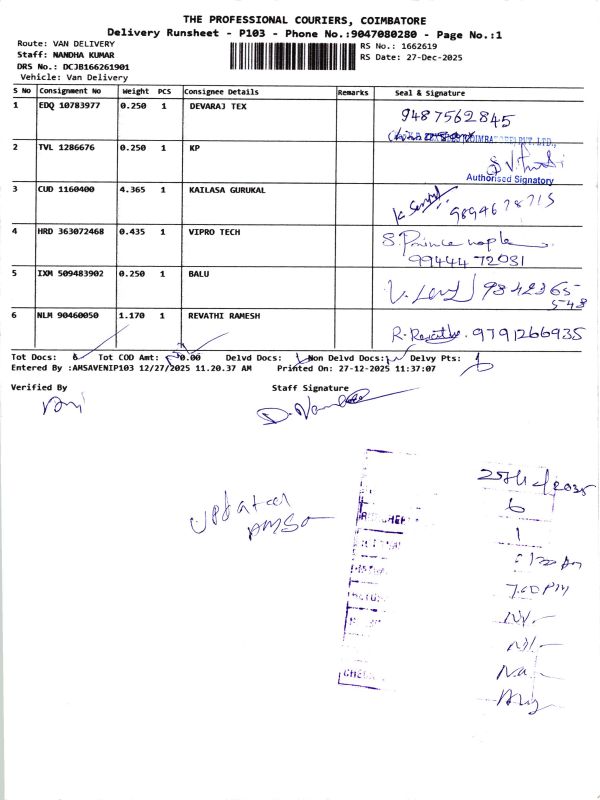 THE PROFESSIONAL COURIERS, COIMBATORE
Delivery Runsheet - P103 - Phone No.:9047080280 - Page No.:1
Route: VAN DELIVERY
RS No.: 1662619
Staff: NANDHA KUMAR
RS Date: 27-Dec-2025
DRS No.: DCJB166261901
Vehicle: Van Delivery
S No Consignment No Weight PCS Consignee Details Remarks Seal & Signature
1 EDQ 10783977 0.250 1 DEVARAJ TEX 9487562845
2 TVL 1286676 0.250 1 KP
Authorised Signatory
3 CUD 1160400 4.365 1 KAILASA GURUKAL 9894678715
4 HRD 363072468 0.435 1 VIPRO TECH
9944472031
5 IXM 509483902 0.250 1 BALU 9842365
548
6 NLM 90460050 1.170 1 REVATHI RAMESH R. Revathi. 9791266935
Tot Docs: 6 Tot COD Amt: 0.00 Delvd Docs: Non Delvd Docs: Delvy Pts:
Entered By :AMSAVENIP103 12/27/2025 11.20.37 AM Printed On: 27-12-2025 11:37:07
Verified By Staff Signature
updated
6
1
7.00 PM